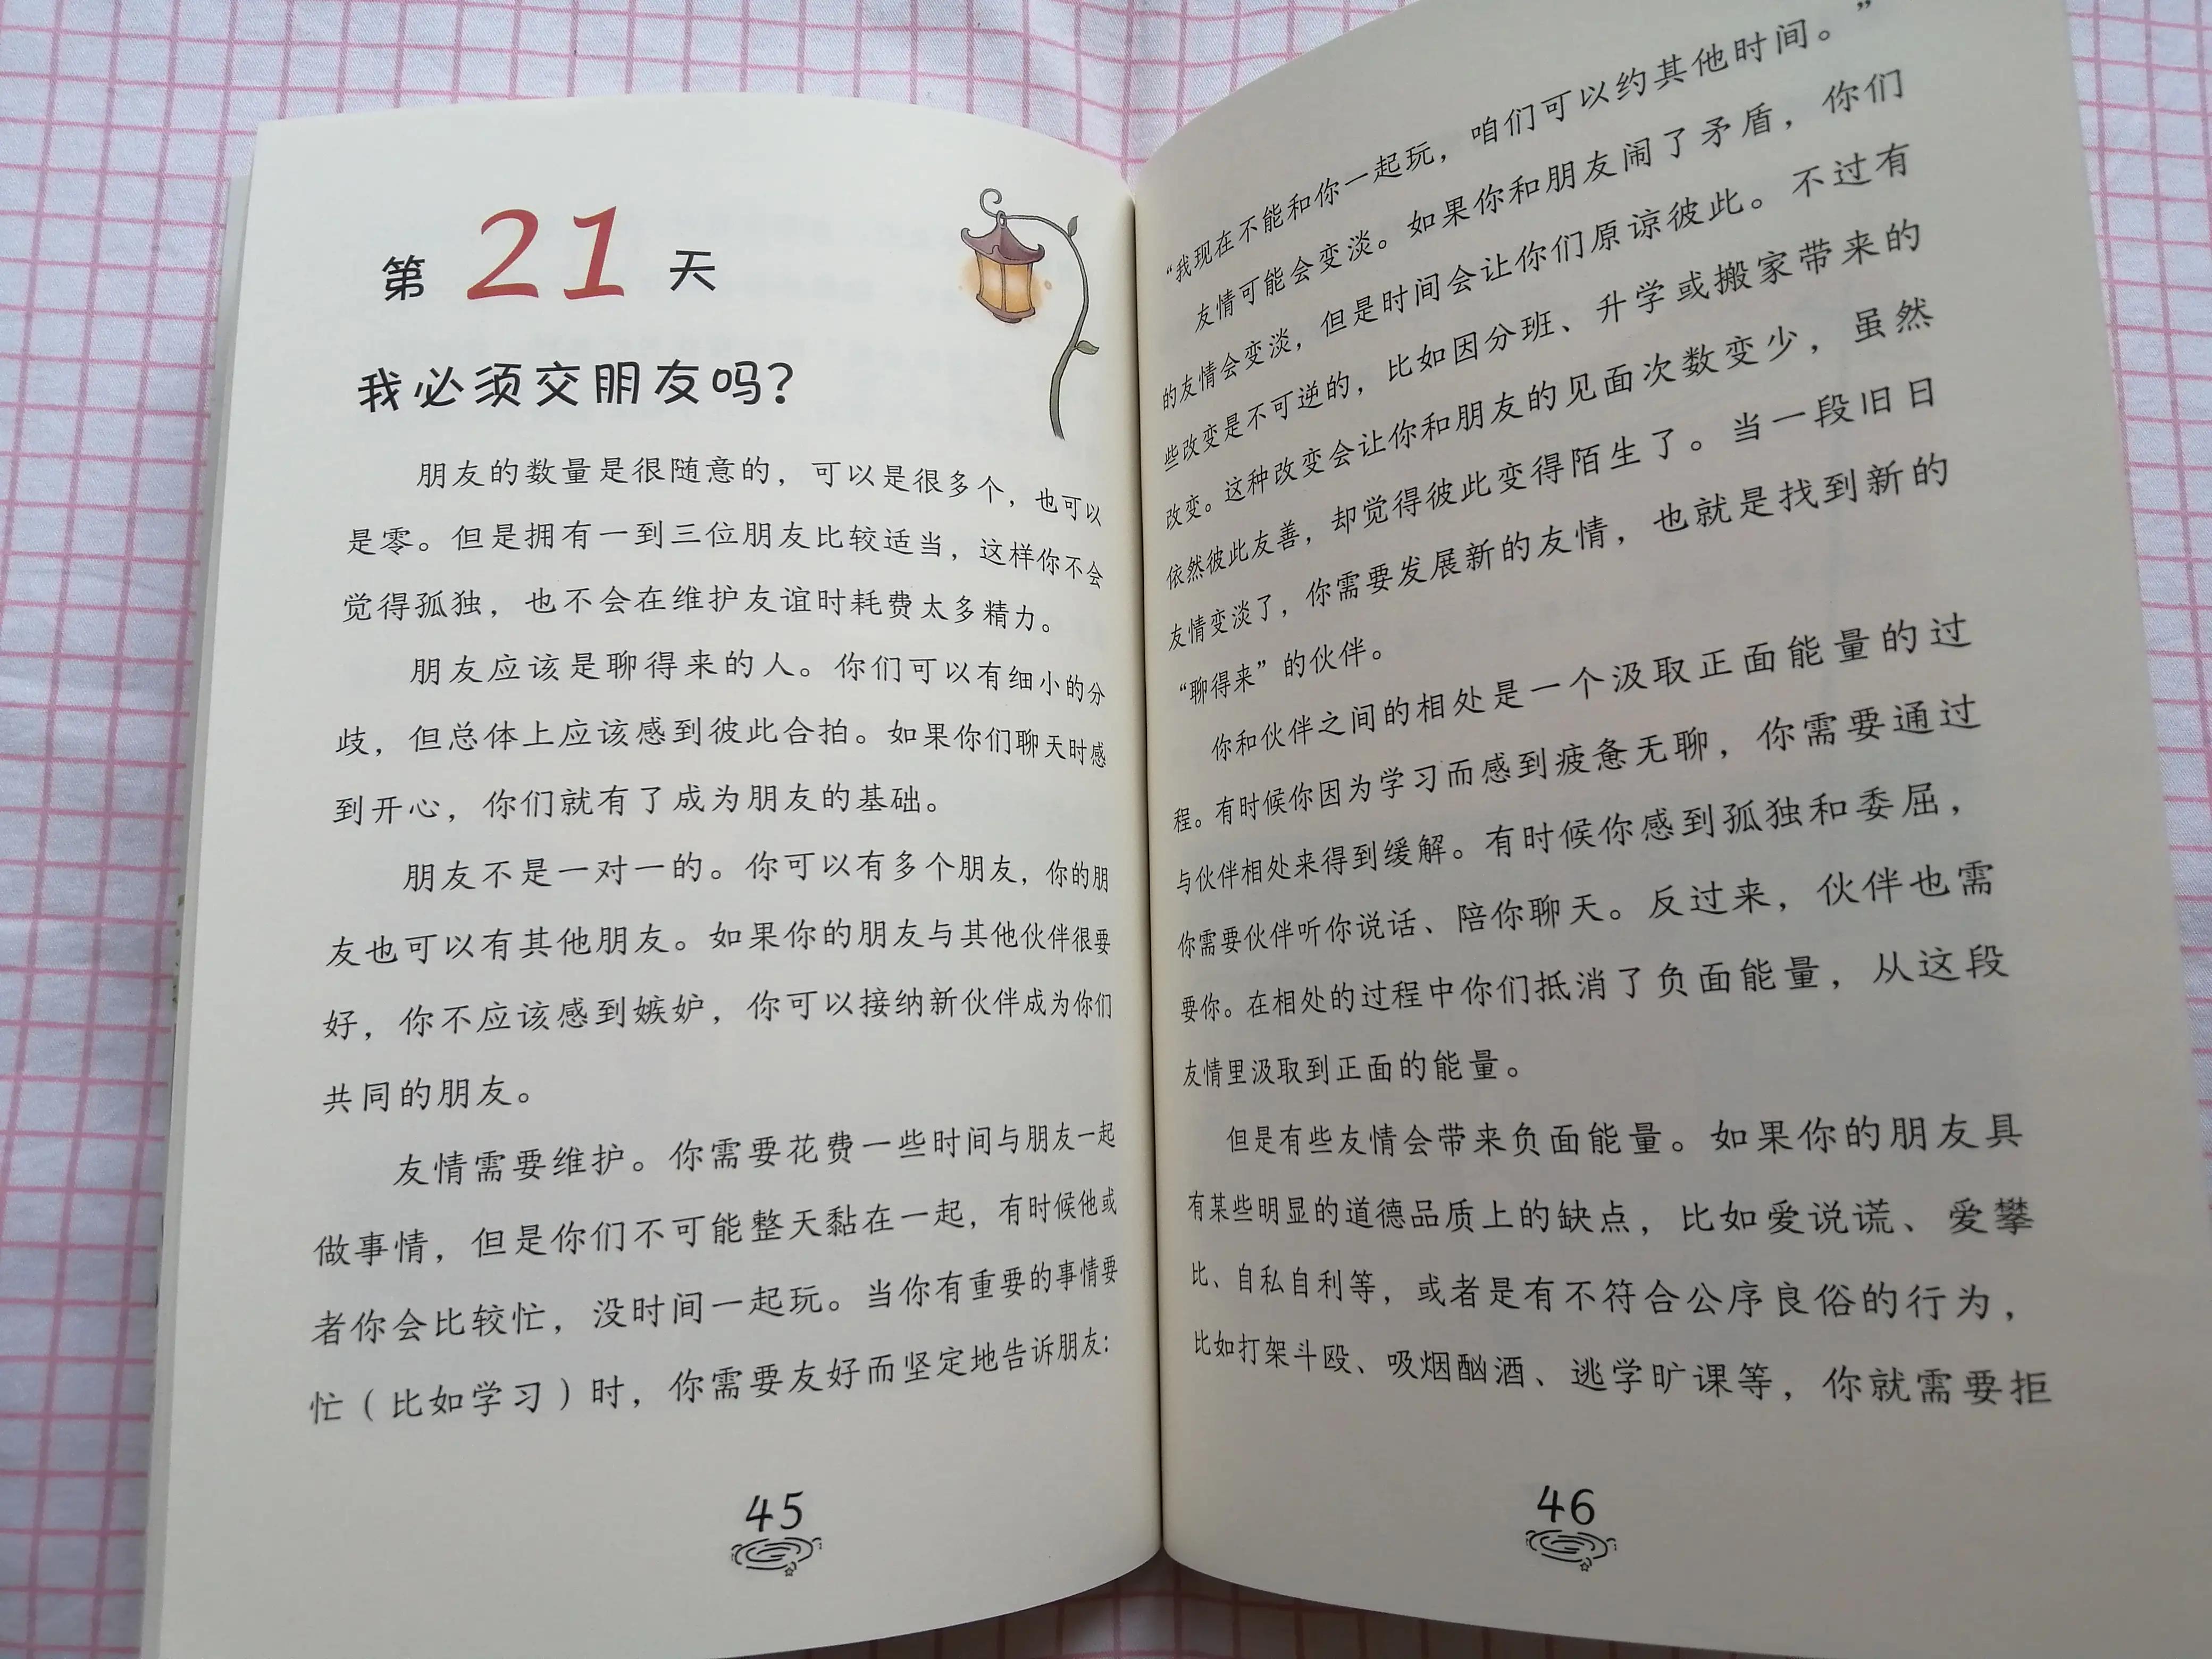 第21天
我必须交朋友吗？
朋友的数量是很随意的，可以是很多个，也可以
是零。但是拥有一到三位朋友比较适当，这样你不会
觉得孤独，也不会在维护友谊时耗费太多精力。
朋友应该是聊得来的人。你们可以有细小的分
歧，但总体上应该感到彼此合拍。如果你们聊天时感
到开心，你们就有了成为朋友的基础。
朋友不是一对一的。你可以有多个朋友，你的朋
友也可以有其他朋友。如果你的朋友与其他伙伴很要
好，你不应该感到嫉妒，你可以接纳新伙伴成为你们
共同的朋友。
友情需要维护。你需要花费一些时间与朋友一起
做事情，但是你们不可能整天黏在一起，有时候他或
者你会比较忙，没时间一起玩。当你有重要的事情要
忙（比如学习）时，你需要友好而坚定地告诉朋友：
45
“我现在不能和你一起玩，咱们可以约其他时间。”
友情可能会变淡。如果你和朋友闹了矛盾，你们
的友情会变淡，但是时间会让你们原谅彼此。不过有
些改变是不可逆的，比如因分班、升学或搬家带来的
改变。这种改变会让你和朋友的见面次数变少，虽然
依然彼此友善，却觉得彼此变得陌生了。当一段旧日
友情变淡了，你需要发展新的友情，也就是找到新的
“聊得来”的伙伴。
你和伙伴之间的相处是一个汲取正面能量的过
程。有时候你因为学习而感到疲惫无聊，你需要通过
与伙伴相处来得到缓解。有时候你感到孤独和委屈，
你需要伙伴听你说话、陪你聊天。反过来，伙伴也需
要你。在相处的过程中你们抵消了负面能量，从这段
友情里汲取到正面的能量。
但是有些友情会带来负面能量。如果你的朋友具
有某些明显的道德品质上的缺点，比如爱说谎、爱攀
比、自私自利等，或者是有不符合公序良俗的行为，
比如打架斗殴、吸烟酗酒、逃学旷课等，你就需要拒
46